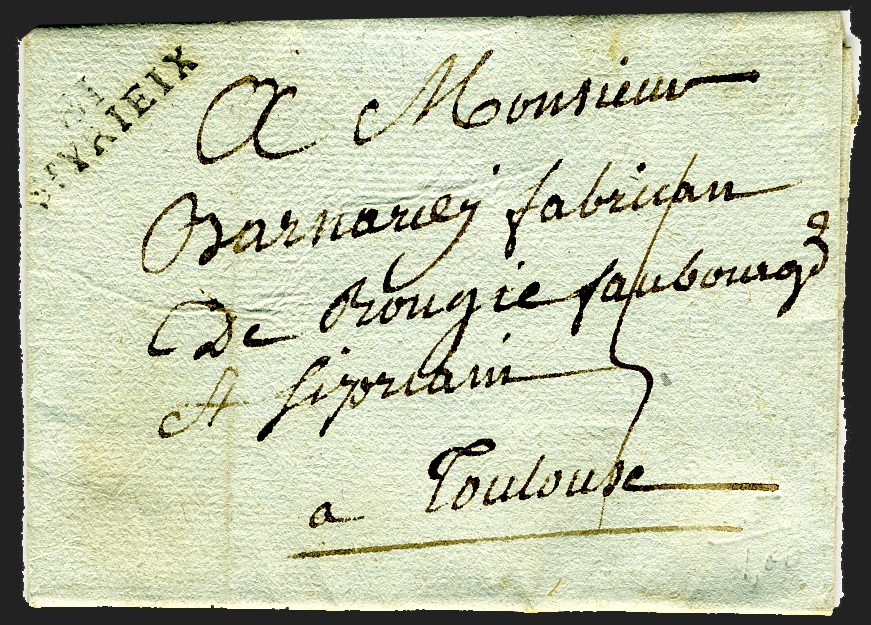 ST YRIEIX
A Monsieur
Barnariey fabrican
De Rougie faubourgd
St Siprain
a Toulouse